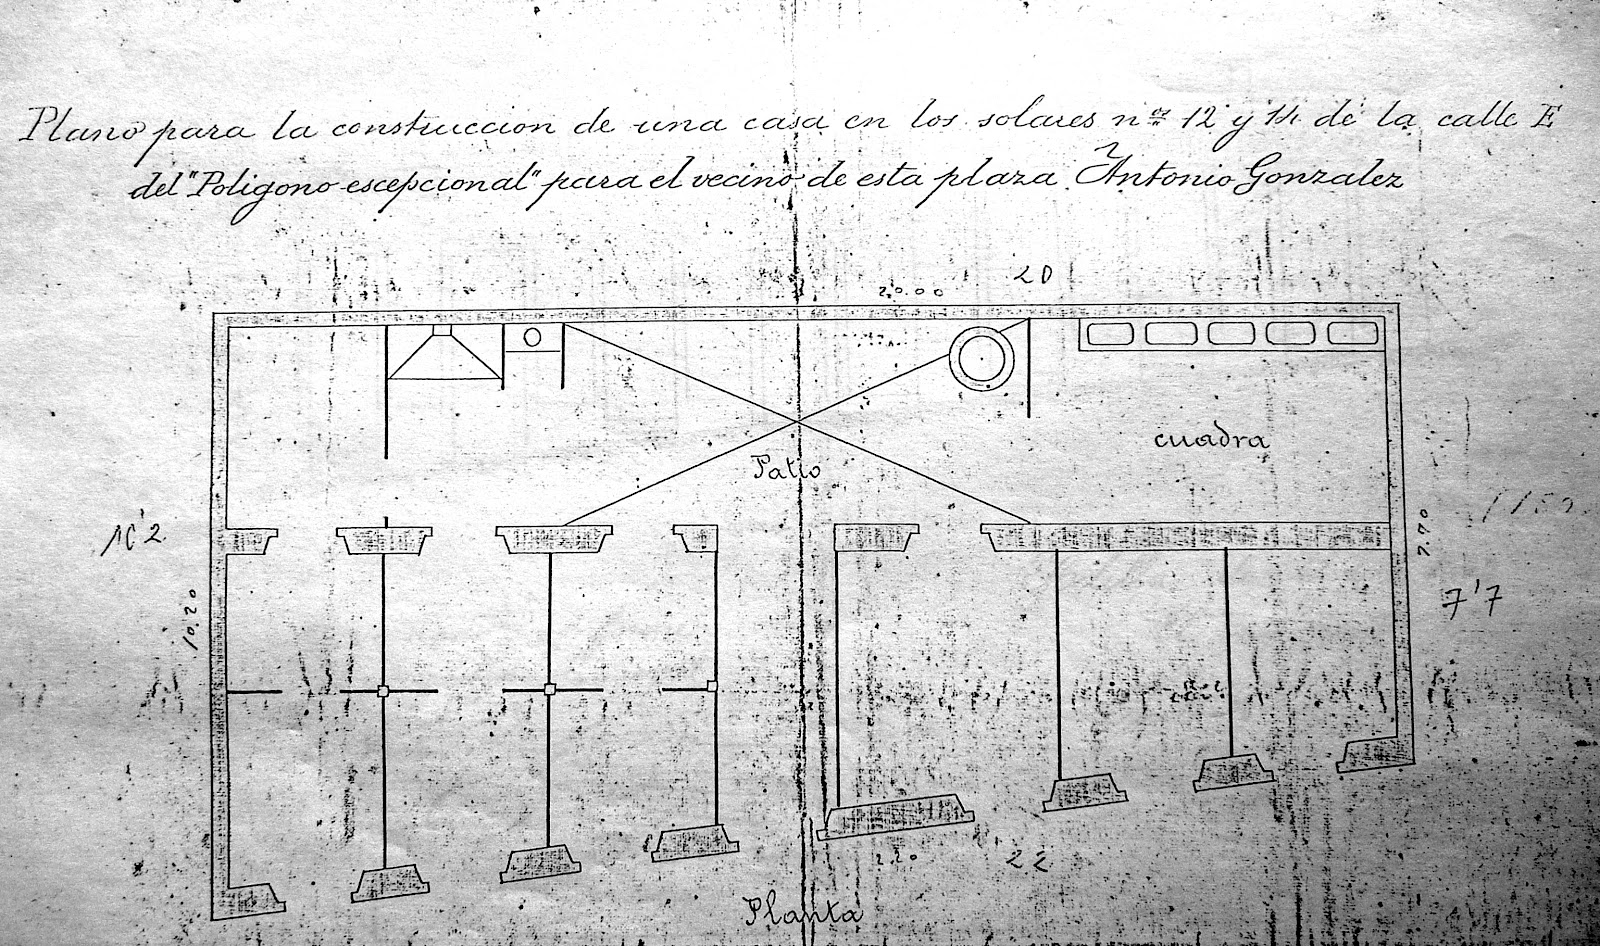 Plano para la construccion de una casa en los solares nos 12 y 14 de la calle E
del "Poligono escepcional" para el vecino de esta plaza Antonio Gonzalez
20
20.00
cuadra
Patio
10'2
7.70
10.20
7'7
22
Planta